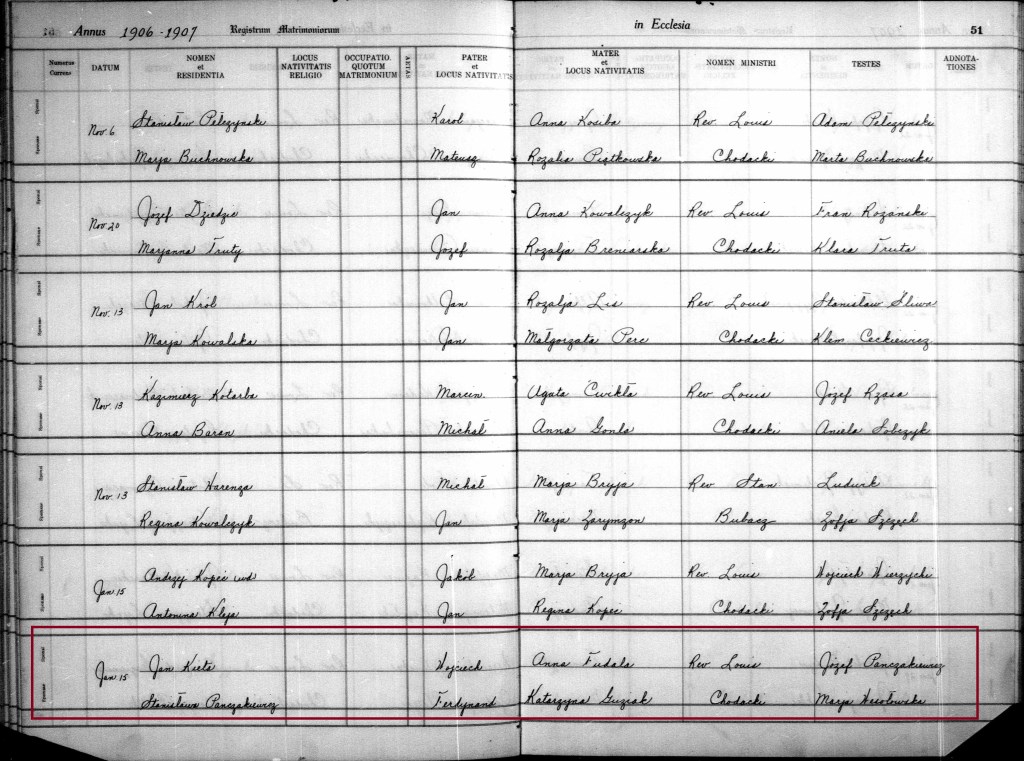 Annus 1906-1907 Registrum Matrimoniorum in Ecclesia 51
Numerus Currens DATUM NOMEN et RESIDENTIA LOCUS NATIVITATIS RELIGIO OCCUPATIO QUOTUM MATRIMONIUM AETAS PATER et LOCUS NATIVITATIS MATER et LOCUS NATIVITATIS NOMEN MINISTRI TESTES ADNOTA- TIONES
Nov. 6
Stanisław Pełczynski Karol Anna Kosiba Rev Louis Adam Pełczynski
Marja Buchnowska Mateusz Rozalia Piątkowska Chodacki Marta Buchnowska
Nov. 20
Józef Dziedzic Jan Anna Kowalczyk Rev Louis Fran Rozanski
Maryanna Truty Jozef Rozalja Breniarska Chodacki Klara Truta
Nov. 13
Jan Król Jan Rozalja Lis Rev Louis Stanisław Śliwa
Marja Kowalska Jan Małgorzata Perc Chodacki Klem Ceckiewicz
Nov. 13
Kazimierz Kotarba Marcin Agata Cwikła Rev Louis Józef Rzasa
Anna Baran Michał Anna Gonla Chodacki Aniela Sobczyk
Nov. 13
Stanisław Warenga Michał Marja Bryja Rev Stan Ludwik
Regina Kowalczyk Jan Marja Zarymzon Bubacz Zofja Szczech
Jan 15
Andrzej Kopeć wd Jakób Marja Bryja Rev Louis Wojciech Wierzycki
Antonina Kleja Jan Regina Kopec Chodacki Zofja Szczech
Jan 15
Jan Kieta Wojciech Anna Fudala Rev Louis Józef Panczakiewicz
Stanisława Panczakiewicz Ferdynand Katarzyna Guziak Chodacki Marja Wesołowska